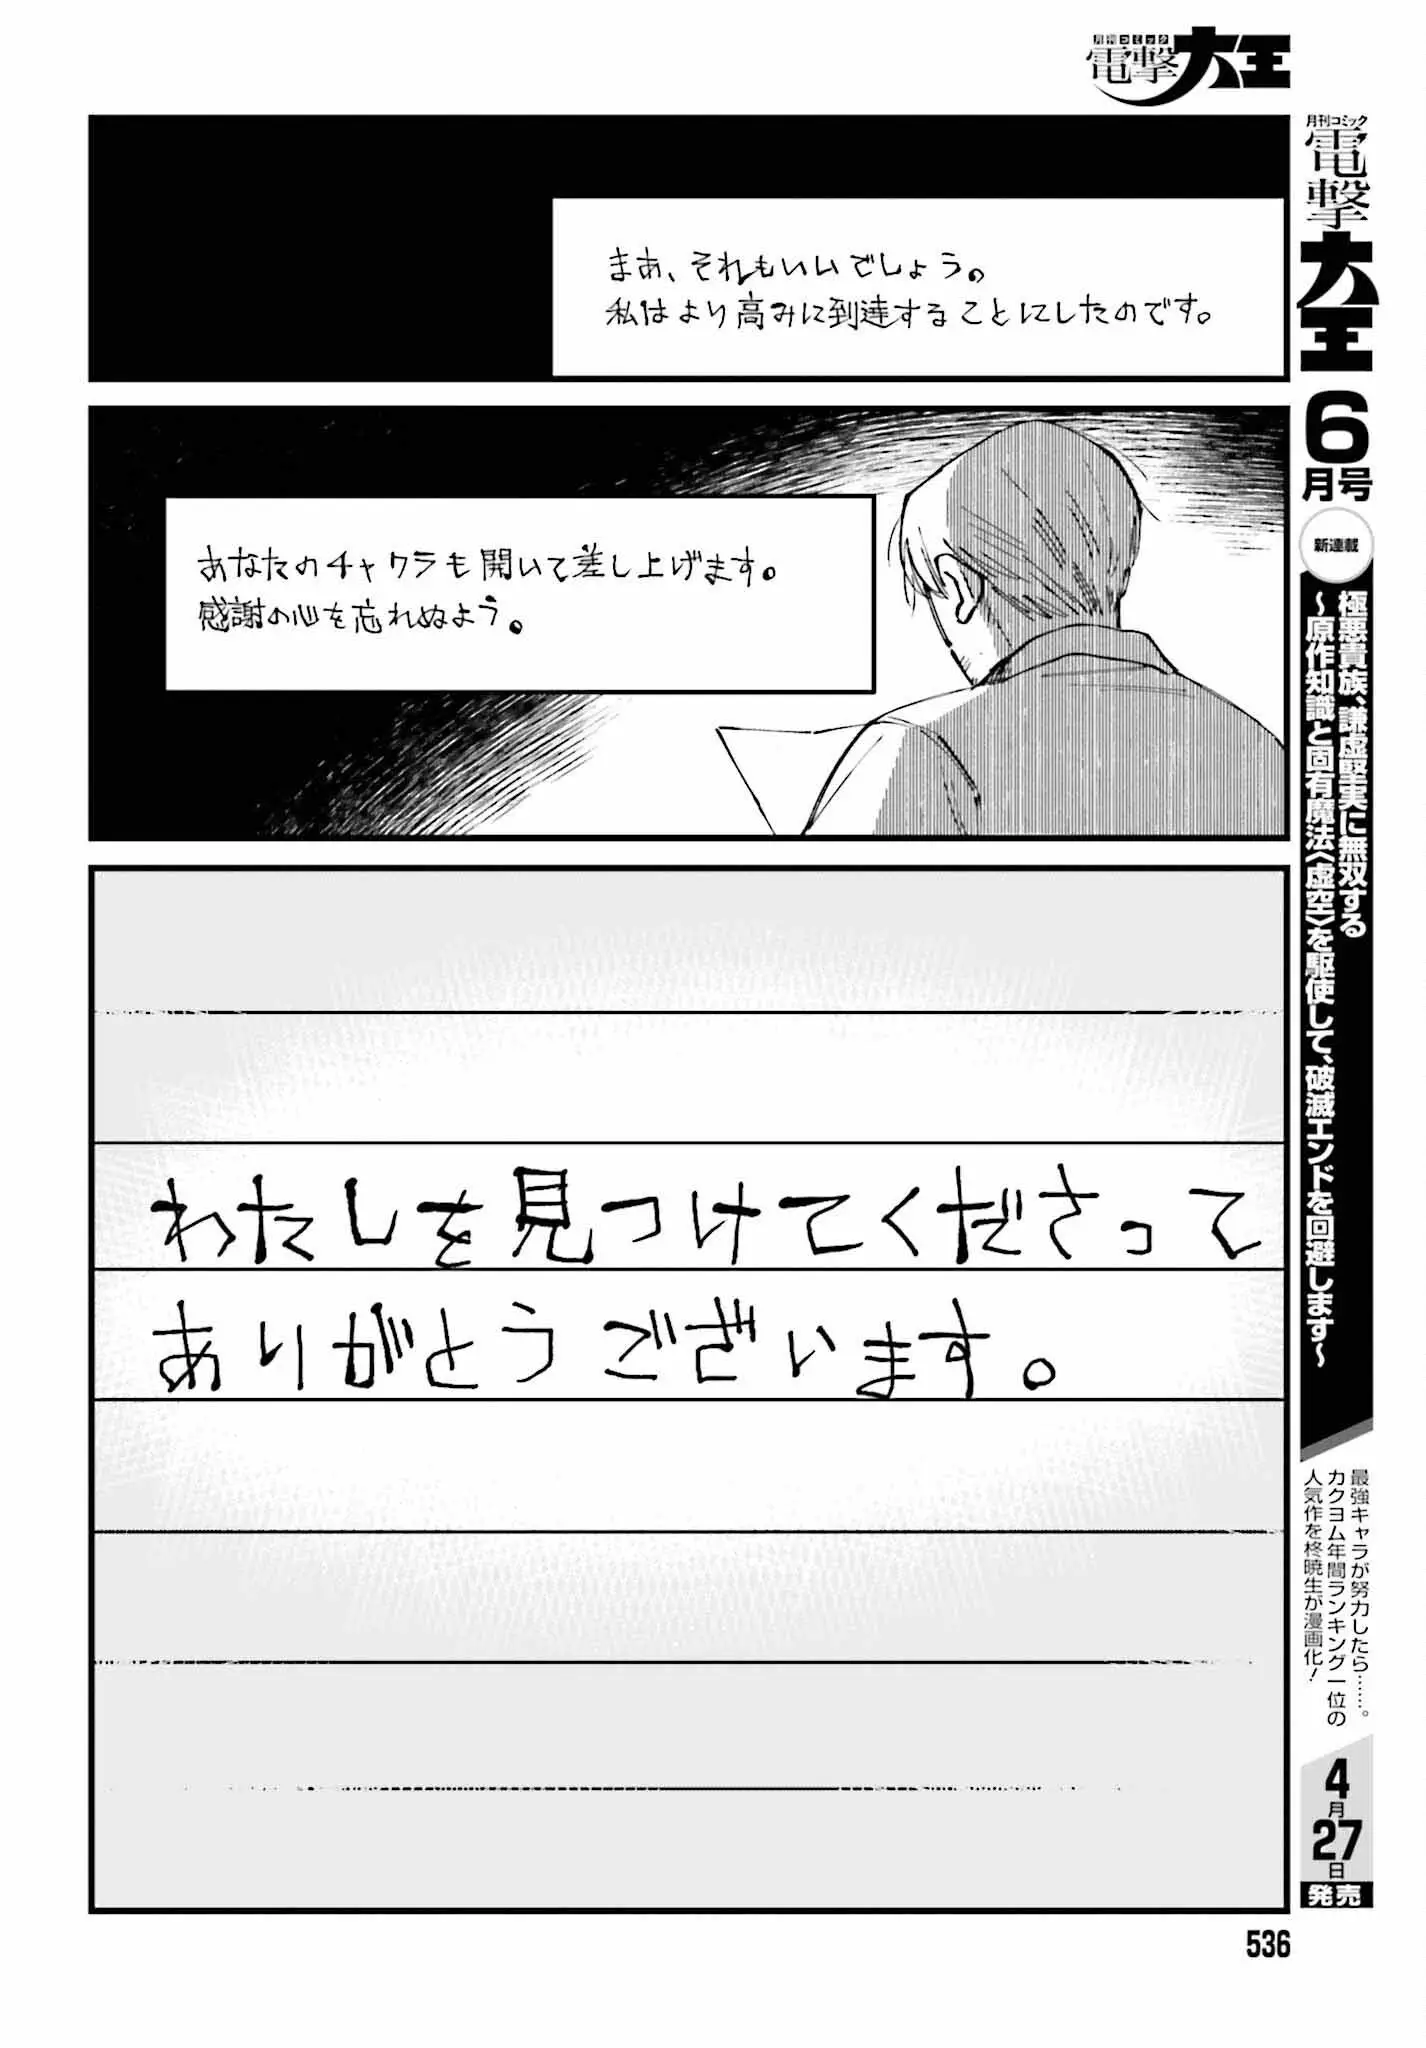 月刊コミック
電撃大王
まあ、それもいいでしょう。
私はより高みに到達することにしたのです。
あなたのチャクラも開いて差し上げます。
感謝の心を忘れぬよう。
わたしを見つけてくださって
ありがとうございます。
月刊コミック
電撃大王
6月号
新連載
極悪貴族、謙虚堅実に無双する
～原作知識と固有魔法〈虚空〉を駆使して、破滅エンドを回避します～
最強キャラが努力したら……。
カクヨム年間ランキング一位の
人気作を柊暁生が漫画化！
4月27日
発売
536